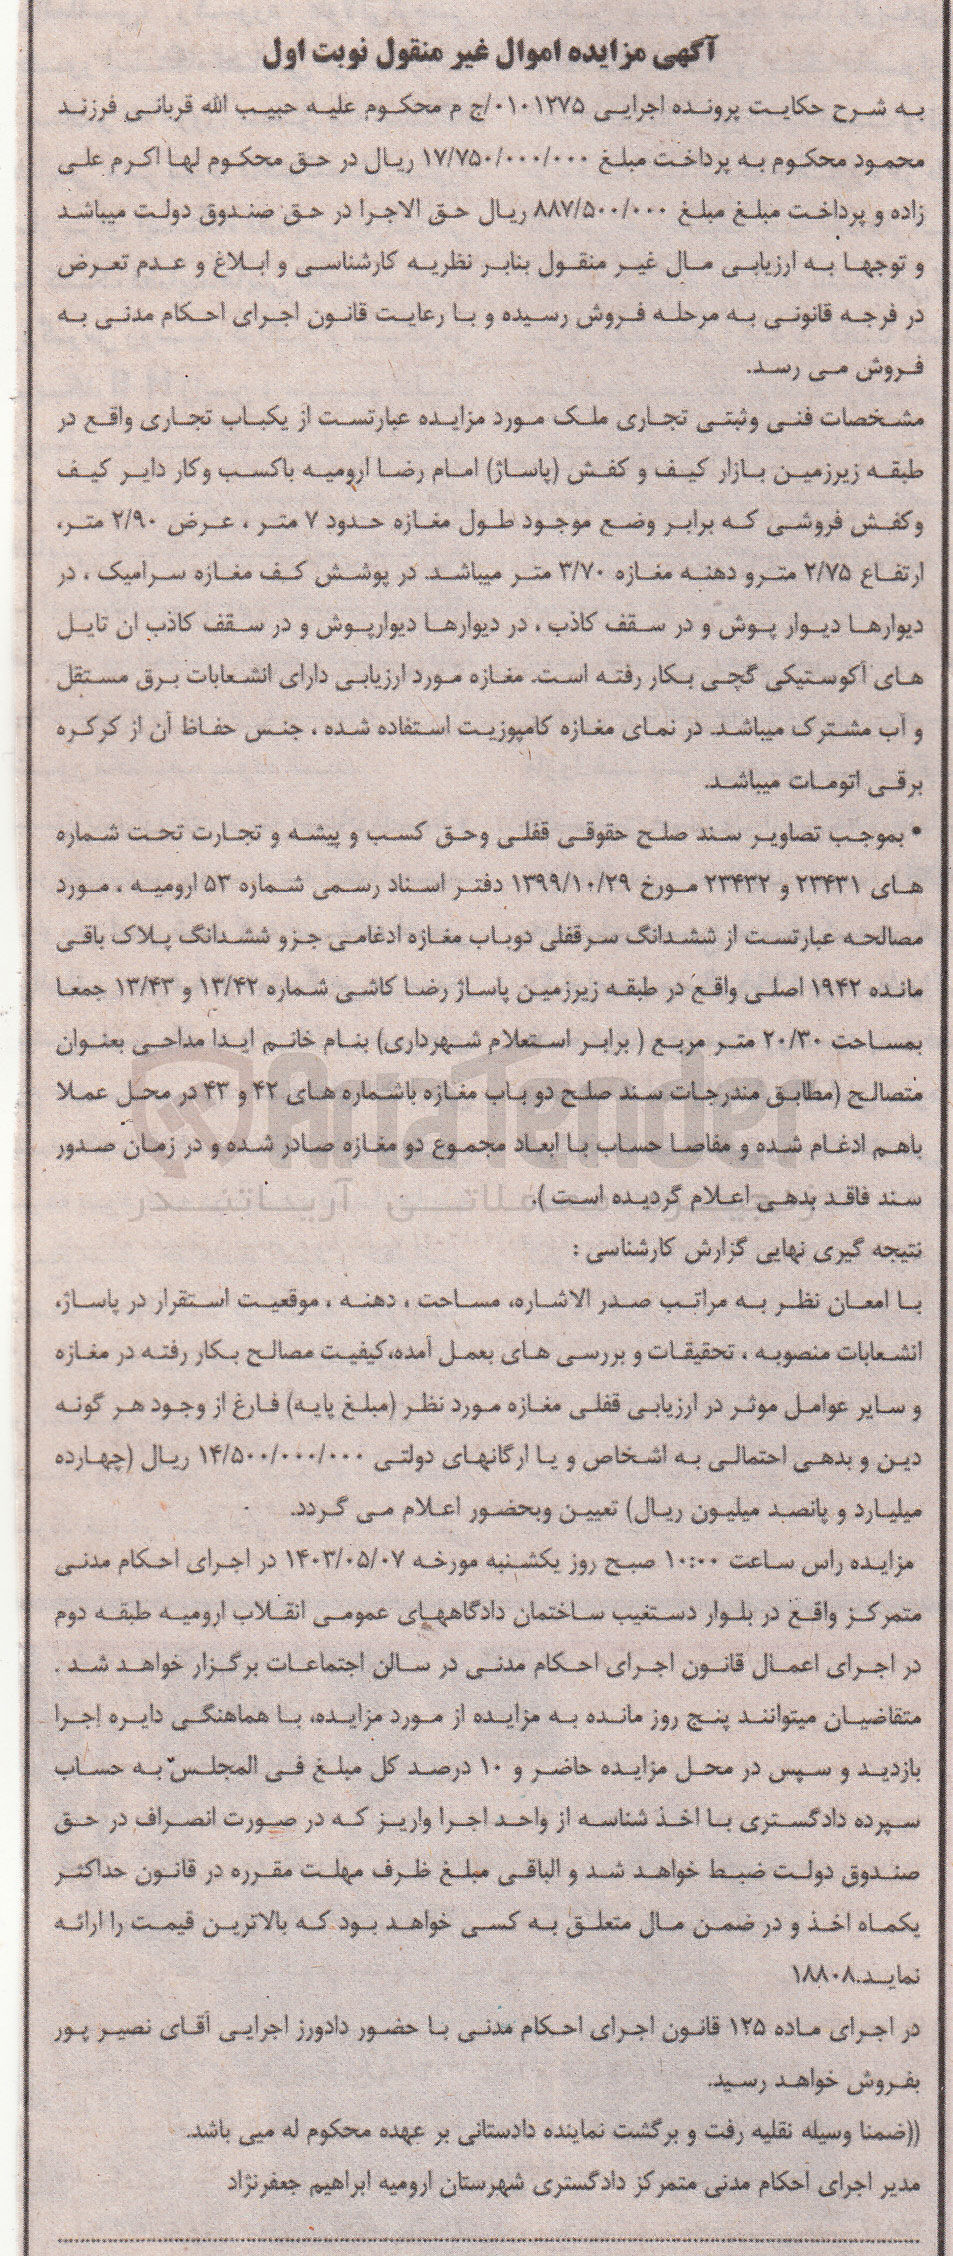 آگهی مزایده اموال غیر منقول نوبت اول
به شرح حکایت پرونده اجرایی ۰۱۰۱۲۷۵/ج م محکوم علیه حبیب الله قربانی فرزند
محمود محکوم به پرداخت مبلغ ۱۷/۷۵۰/۰۰۰/۰۰۰ ریال در حق محکوم لها اکرم علی
زاده و پرداخت مبلغ مبلغ ۸۸۷/۵۰۰/۰۰۰ ریال حق الاجرا در حق صندوق دولت میباشد
و توجها به ارزیابی مال غیر منقول بنابر نظریه کارشناسی و ابلاغ و عدم تعرض
در فرجه قانونی به مرحله فروش رسیده و با رعایت قانون اجرای احکام مدنی به
فروش می رسد.
مشخصات فنی وثبتی تجاری ملک مورد مزایده عبارتست از یکباب تجاری واقع در
طبقه زیرزمین بازار کیف و کفش (پاساژ) امام رضا ارومیه باکسب وکار دایر کیف
وکفش فروشی که برابر وضع موجود طول مغازه حدود ۷ متر ، عرض ۲/۹۰ متر،
ارتفاع ۲/۷۵ مترو دهنه مغازه ۳/۷۰ متر میباشد. در پوشش کف مغازه سرامیک ، در
دیوارها دیوار پوش و در سقف کاذب ، در دیوارها دیوارپوش و در سقف کاذب ان تایل
های آکوستیکی گچی بکار رفته است. مغازه مورد ارزیابی دارای انشعابات برق مستقل
و آب مشترک میباشد. در نمای مغازه کامپوزیت استفاده شده ، جنس حفاظ آن از کرکره
برقی اتومات میباشد.
• بموجب تصاویر سند صلح حقوقی قفلی وحق کسب و پیشه و تجارت تحت شماره
های ۲۳۴۳۱ و ۲۳۴۳۲ مورخ ۱۳۹۹/۱۰/۲۹ دفتر اسناد رسمی شماره ۵۳ ارومیه ، مورد
مصالحه عبارتست از ششدانگ سرقفلی دوباب مغازه ادغامی جزو ششدانگ پلاک باقی
مانده ۱۹۴۲ اصلی واقع در طبقه زیرزمین پاساژ رضا کاشی شماره ۱۳/۴۲ و ۱۳/۴۳ جمعا
بمساحت ۲۰/۳۰ متر مربع ( برابر استعلام شهرداری) بنام خانم ایدا مداحی بعنوان
متصالح (مطابق مندرجات سند صلح دو باب مغازه باشماره های ۴۲ و ۴۳ در محل عملا
باهم ادغام شده و مفاصا حساب با ابعاد مجموع دو مغازه صادر شده و در زمان صدور
سند فاقد بدهی اعلام گردیده است ).
نتیجه گیری نهایی گزارش کارشناسی :
با امعان نظر به مراتب صدر الاشاره، مساحت ، دهنه ، موقعیت استقرار در پاساژ،
انشعابات منصوبه ، تحقیقات و بررسی های بعمل آمده،کیفیت مصالح بکار رفته در مغازه
و سایر عوامل موثر در ارزیابی قفلی مغازه مورد نظر (مبلغ پایه) فارغ از وجود هر گونه
دین و بدهی احتمالی به اشخاص و یا ارگانهای دولتی ۱۴/۵۰۰/۰۰۰/۰۰۰ ریال (چهارده
میلیارد و پانصد میلیون ریال) تعیین وبحضور اعلام می گردد.
مزایده راس ساعت ۱۰:۰۰ صبح روز یکشنبه مورخه ۱۴۰۳/۰۵/۰۷ در اجرای احکام مدنی
متمرکز واقع در بلوار دستغیب ساختمان دادگاههای عمومی انقلاب ارومیه طبقه دوم
در اجرای اعمال قانون اجرای احکام مدنی در سالن اجتماعات برگزار خواهد شد .
متقاضیان میتوانند پنج روز مانده به مزایده از مورد مزایده، با هماهنگی دایره اجرا
بازدید و سپس در محل مزایده حاضر و ۱۰ درصد کل مبلغ فی المجلس به حساب
سپرده دادگستری با اخذ شناسه از واحد اجرا واریز که در صورت انصراف در حق
صندوق دولت ضبط خواهد شد و الباقی مبلغ ظرف مهلت مقرره در قانون حداکثر
یکماه اخذ و در ضمن مال متعلق به کسی خواهد بود که بالاترین قیمت را ارائه
نماید.۱۸۸۰۸
در اجرای ماده ۱۲۵ قانون اجرای احکام مدنی با حضور دادورز اجرایی آقای نصیر پور
بفروش خواهد رسید.
((ضمنا وسیله نقلیه رفت و برگشت نماینده دادستانی بر عهده محکوم له میی باشد.
مدیر اجرای احکام مدنی متمرکز دادگستری شهرستان ارومیه ابراهیم جعفرنژاد
AriaTender